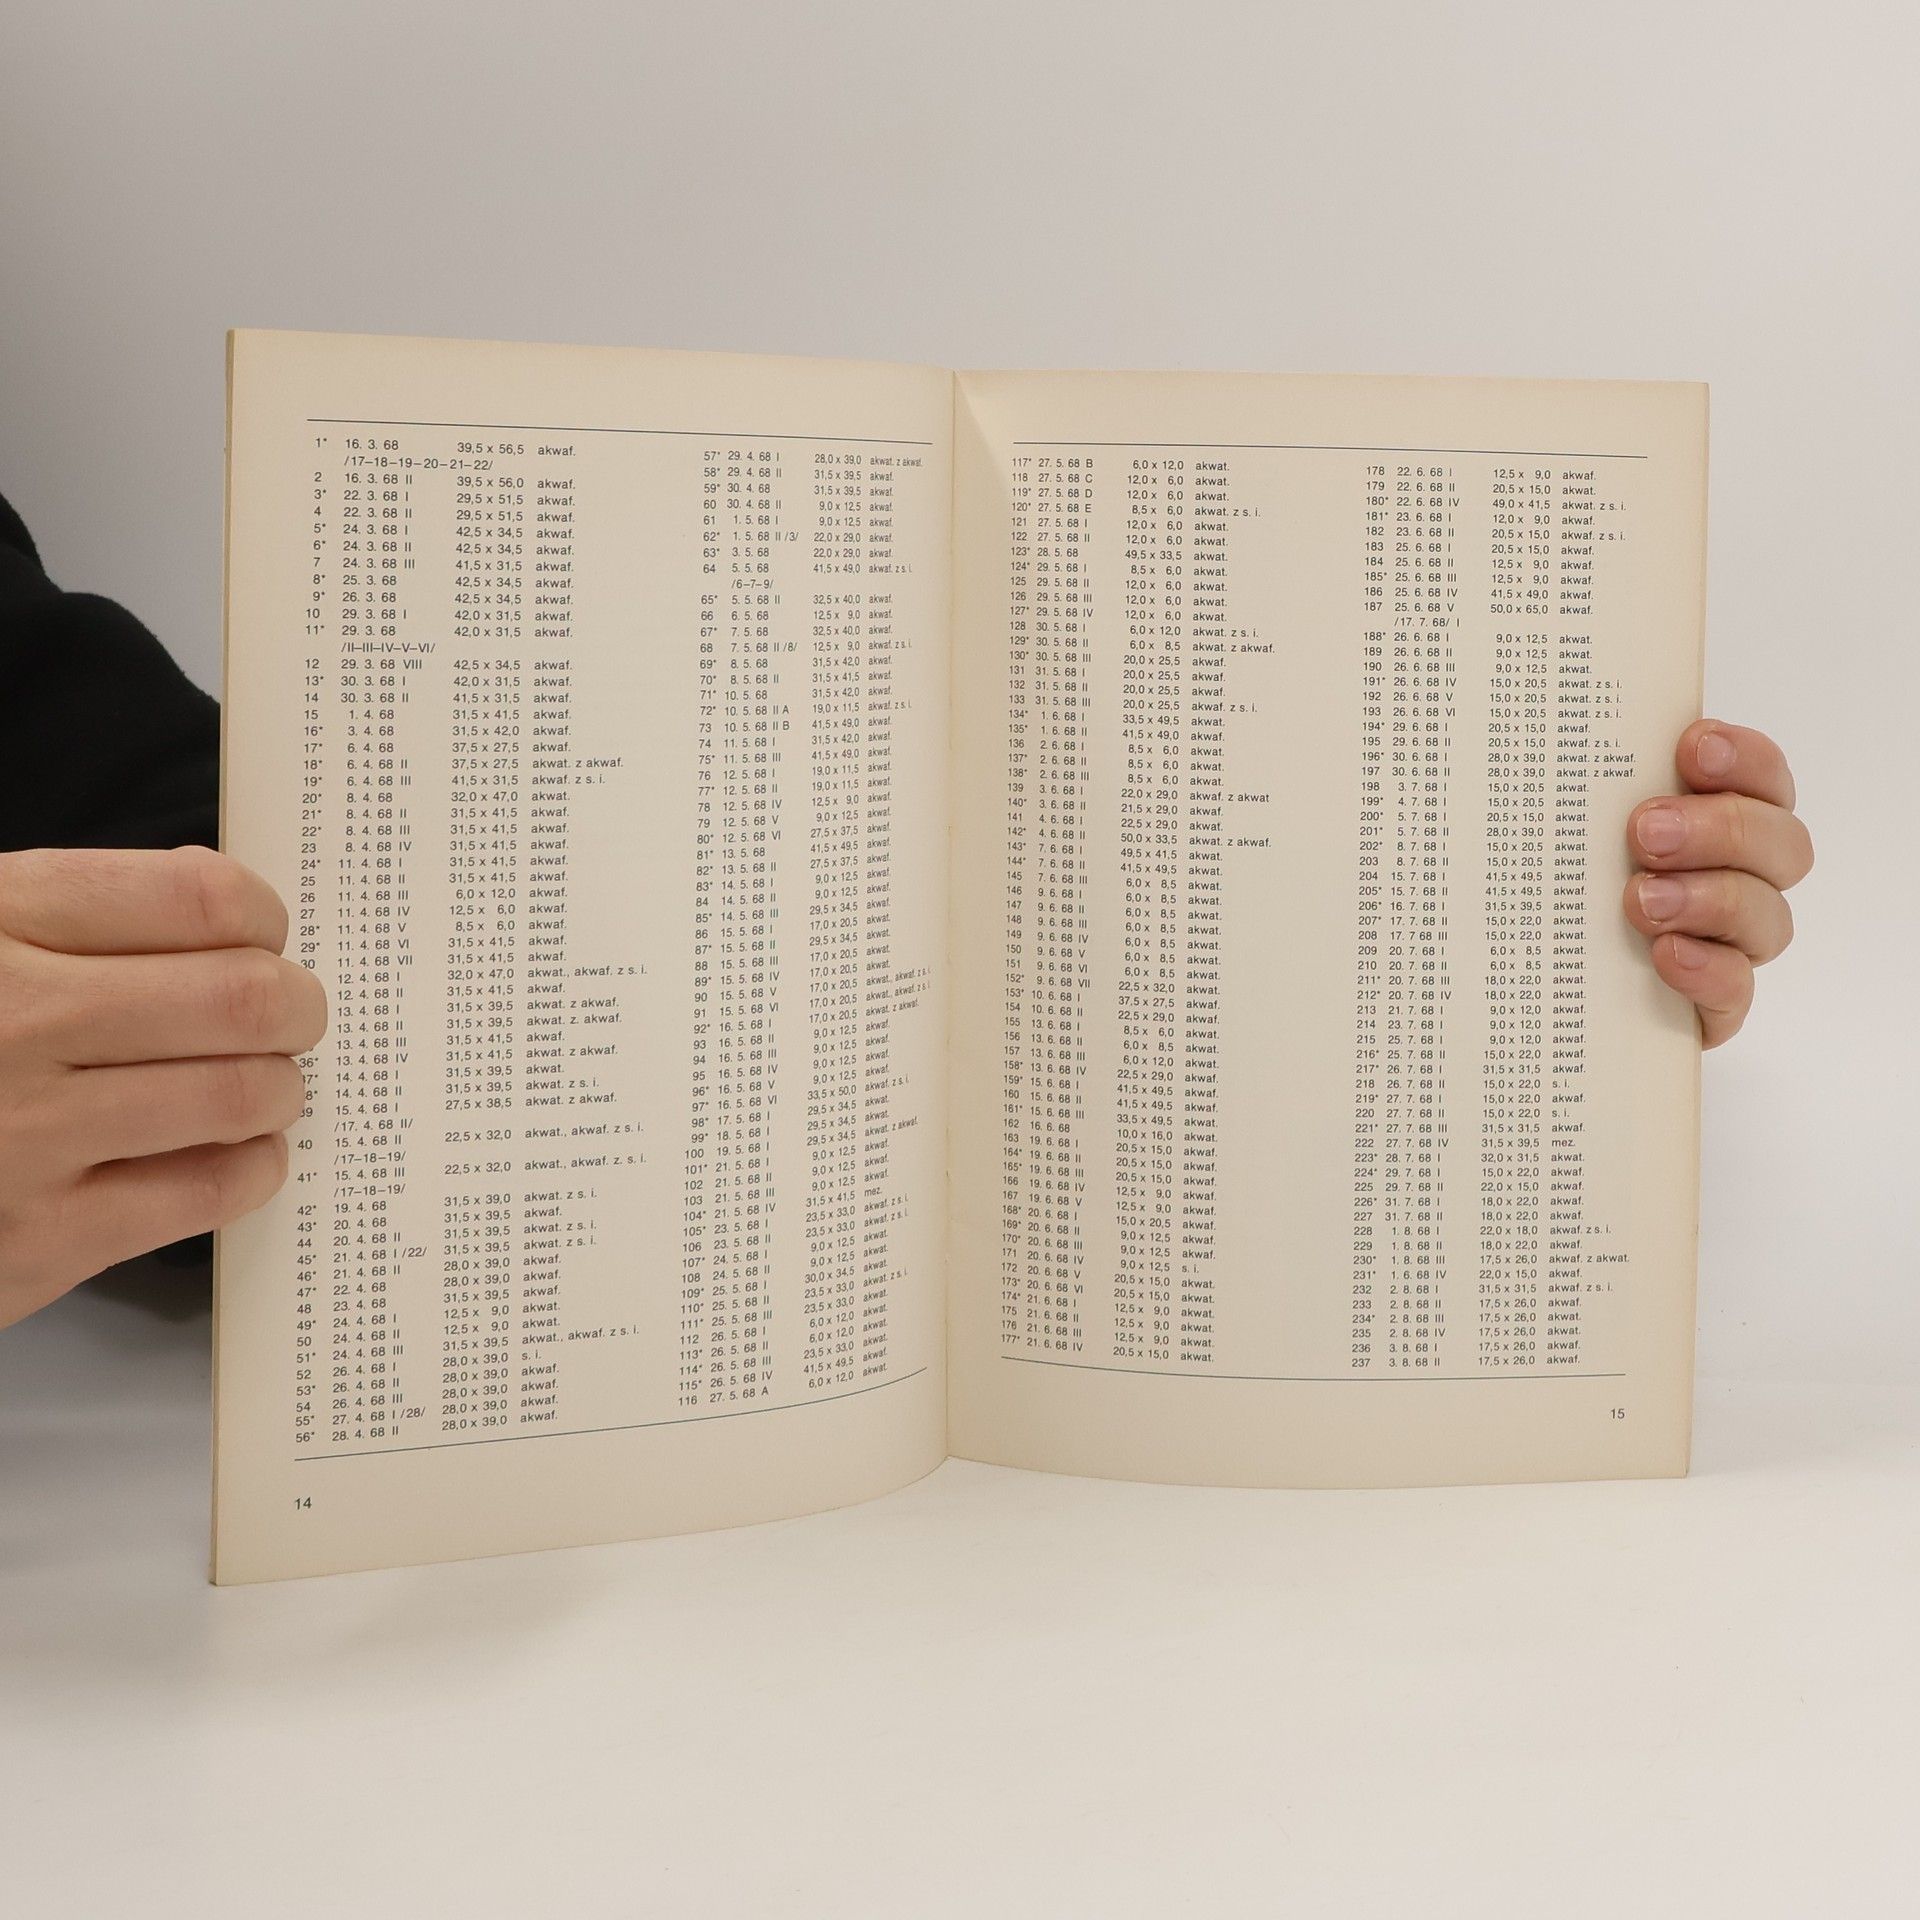 1* 16. 3. 68 39,5 x 56,5 akwaf.
/17–18–19–20–21–22/
2 16. 3. 68 II 39,5 x 56,0 akwaf.
3* 22. 3. 68 I 29,5 x 51,5 akwaf.
4 22. 3. 68 II 29,5 x 51,5 akwaf.
5* 24. 3. 68 I 42,5 x 34,5 akwaf.
6* 24. 3. 68 II 42,5 x 34,5 akwaf.
7 24. 3. 68 III 41,5 x 31,5 akwaf.
8* 25. 3. 68 42,5 x 34,5 akwaf.
9* 26. 3. 68 42,5 x 34,5 akwaf.
10 29. 3. 68 I 42,0 x 31,5 akwaf.
11* 29. 3. 68 42,0 x 31,5 akwaf.
/II–III–IV–V–VI/
12 29. 3. 68 VIII 42,5 x 34,5 akwaf.
13* 30. 3. 68 I 42,0 x 31,5 akwaf.
14 30. 3. 68 II 41,5 x 31,5 akwaf.
15 1. 4. 68 31,5 x 41,5 akwaf.
16* 3. 4. 68 31,5 x 42,0 akwaf.
17* 6. 4. 68 37,5 x 27,5 akwaf.
18* 6. 4. 68 II 37,5 x 27,5 akwat. z akwaf.
19* 6. 4. 68 III 41,5 x 31,5 akwaf. z s. i.
20* 8. 4. 68 32,0 x 47,0 akwat.
21* 8. 4. 68 II 31,5 x 41,5 akwaf.
22* 8. 4. 68 III 31,5 x 41,5 akwaf.
23 8. 4. 68 IV 31,5 x 41,5 akwaf.
24* 11. 4. 68 I 31,5 x 41,5 akwaf.
25 11. 4. 68 II 31,5 x 41,5 akwaf.
26 11. 4. 68 III 6,0 x 12,0 akwaf.
27 11. 4. 68 IV 12,5 x 6,0 akwaf.
28* 11. 4. 68 V 8,5 x 6,0 akwaf.
29* 11. 4. 68 VI 31,5 x 41,5 akwaf.
30 11. 4. 68 VII 31,5 x 41,5 akwaf.
12. 4. 68 I 32,0 x 47,0 akwat., akwaf. z s. i.
12. 4. 68 II 31,5 x 41,5 akwaf.
13. 4. 68 I 31,5 x 39,5 akwat. z akwaf.
13. 4. 68 II 31,5 x 39,5 akwat. z. akwaf.
13. 4. 68 III 31,5 x 41,5 akwaf.
36* 13. 4. 68 IV 31,5 x 41,5 akwat. z akwaf.
7* 14. 4. 68 I 31,5 x 39,5 akwat.
8* 14. 4. 68 II 31,5 x 39,5 akwat. z s. i.
39 15. 4. 68 I 27,5 x 38,5 akwat. z akwaf.
/17. 4. 68 II/
40 15. 4. 68 II 22,5 x 32,0 akwat., akwaf. z s. i.
/17–18–19/
41* 15. 4. 68 III 22,5 x 32,0 akwat., akwaf. z s. i.
/17–18–19/
42* 19. 4. 68 31,5 x 39,0 akwat. z s. i.
43* 20. 4. 68 31,5 x 39,5 akwaf.
44 20. 4. 68 II 31,5 x 39,5 akwat. z s. i.
45* 21. 4. 68 I /22/ 31,5 x 39,5 akwat. z s. i.
46* 21. 4. 68 II 28,0 x 39,0 akwaf.
47* 22. 4. 68 28,0 x 39,0 akwaf.
48 23. 4. 68 31,5 x 39,5 akwaf.
49* 24. 4. 68 I 12,5 x 9,0 akwat.
50 24. 4. 68 II 12,5 x 9,0 akwat.
51* 24. 4. 68 III 31,5 x 39,5 akwat., akwaf. z s. i.
52 26. 4. 68 I 28,0 x 39,0 s. i.
53* 26. 4. 68 II 28,0 x 39,0 akwaf.
54 26. 4. 68 III 28,0 x 39,0 akwaf.
55* 27. 4. 68 I /28/ 28,0 x 39,0 akwaf.
56* 28. 4. 68 II 28,0 x 39,0 akwaf.
57* 29. 4. 68 I 28,0 x 39,0 akwat. z akwaf.
58* 29. 4. 68 II 31,5 x 39,5 akwaf.
59* 30. 4. 68 31,5 x 39,5 akwaf.
60 30. 4. 68 II 9,0 x 12,5 akwaf.
61 1. 5. 68 I 9,0 x 12,5 akwaf.
62* 1. 5. 68 II /3/ 22,0 x 29,0 akwaf.
63* 3. 5. 68 22,0 x 29,0 akwaf.
64 5. 5. 68 41,5 x 49,0 akwaf. z s. i.
/6–7–9/
65* 5. 5. 68 II 32,5 x 40,0 akwaf.
66 6. 5. 68 12,5 x 9,0 akwaf.
67* 7. 5. 68 32,5 x 40,0 akwaf.
68 7. 5. 68 II /8/ 12,5 x 9,0 akwaf. z s. i.
69* 8. 5. 68 31,5 x 42,0 akwaf.
70* 8. 5. 68 II 31,5 x 41,5 akwaf.
71* 10. 5. 68 31,5 x 42,0 akwaf.
72* 10. 5. 68 II A 19,0 x 11,5 akwaf. z s. i.
73 10. 5. 68 II B 41,5 x 49,0 akwaf.
74 11. 5. 68 I 31,5 x 42,0 akwaf.
75* 11. 5. 68 III 41,5 x 49,0 akwaf.
76 12. 5. 68 I 19,0 x 11,5 akwaf.
77* 12. 5. 68 II 19,0 x 11,5 akwaf.
78 12. 5. 68 IV 12,5 x 9,0 akwaf.
79 12. 5. 68 V 9,0 x 12,5 akwaf.
80* 12. 5. 68 VI 27,5 x 37,5 akwaf.
81* 13. 5. 68 41,5 x 49,5 akwaf.
82* 13. 5. 68 II 27,5 x 37,5 akwaf.
83* 14. 5. 68 I 9,0 x 12,5 akwaf.
84 14. 5. 68 II 9,0 x 12,5 akwaf.
85* 14. 5. 68 III 29,5 x 34,5 akwaf.
86 15. 5. 68 I 17,0 x 20,5 akwat.
87* 15. 5. 68 II 29,5 x 34,5 akwat.
88 15. 5. 68 III 17,0 x 20,5 akwat.
89* 15. 5. 68 IV 17,0 x 20,5 akwat.
90 15. 5. 68 V 17,0 x 20,5 akwat., akwaf. z s. i.
91 15. 5. 68 VI 17,0 x 20,5 akwat., akwaf. z s. i.
92* 16. 5. 68 I 17,0 x 20,5 akwat. z akwaf.
93 16. 5. 68 II 9,0 x 12,5 akwaf.
94 16. 5. 68 III 9,0 x 12,5 akwaf.
95 16. 5. 68 IV 9,0 x 12,5 akwaf.
96* 16. 5. 68 V 9,0 x 12,5 akwaf.
97* 16. 5. 68 VI 33,5 x 50,0 akwaf. z s. i.
98* 17. 5. 68 I 29,5 x 34,5 akwat.
99* 18. 5. 68 I 29,5 x 34,5 akwat.
100 19. 5. 68 I 29,5 x 34,5 akwat. z akwaf.
101* 21. 5. 68 I 9,0 x 12,5 akwaf.
102 21. 5. 68 II 9,0 x 12,5 akwaf.
103 21. 5. 68 III 9,0 x 12,5 akwaf.
104* 21. 5. 68 IV 31,5 x 41,5 mez.
105* 23. 5. 68 I 23,5 x 33,0 akwaf. z s. i.
106 23. 5. 68 II 23,5 x 33,0 akwaf. z s. i.
107* 24. 5. 68 I 9,0 x 12,5 akwaf.
108 24. 5. 68 II 9,0 x 12,5 akwaf.
109* 25. 5. 68 I 30,0 x 34,5 akwat.
110* 25. 5. 68 II 23,5 x 33,0 akwat. z s. i.
111* 25. 5. 68 III 23,5 x 33,0 akwat.
112 26. 5. 68 I 6,0 x 12,0 akwat.
113* 26. 5. 68 II 6,0 x 12,0 akwat.
114* 26. 5. 68 III 23,5 x 33,0 akwat.
115* 26. 5. 68 IV 41,5 x 49,5 akwaf.
116 27. 5. 68 A 6,0 x 12,0 akwat.
14
117* 27. 5. 68 B 6,0 x 12,0 akwat.
118 27. 5. 68 C 12,0 x 6,0 akwat.
119* 27. 5. 68 D 12,0 x 6,0 akwat.
120* 27. 5. 68 E 8,5 x 6,0 akwat. z s. i.
121 27. 5. 68 I 12,0 x 6,0 akwat.
122 27. 5. 68 II 12,0 x 6,0 akwat.
123* 28. 5. 68 49,5 x 33,5 akwat.
124* 29. 5. 68 I 8,5 x 6,0 akwat.
125 29. 5. 68 II 12,0 x 6,0 akwat.
126 29. 5. 68 III 12,0 x 6,0 akwat.
127* 29. 5. 68 IV 12,0 x 6,0 akwat.
128 30. 5. 68 I 6,0 x 12,0 akwat. z s. i.
129* 30. 5. 68 II 6,0 x 8,5 akwat. z akwaf.
130* 30. 5. 68 III 20,0 x 25,5 akwaf.
131 31. 5. 68 I 20,0 x 25,5 akwaf.
132 31. 5. 68 II 20,0 x 25,5 akwaf.
133 31. 5. 68 III 20,0 x 25,5 akwaf. z s. i.
134* 1. 6. 68 I 33,5 x 49,5 akwat.
135* 1. 6. 68 II 41,5 x 49,0 akwaf.
136 2. 6. 68 I 8,5 x 6,0 akwat.
137* 2. 6. 68 II 8,5 x 6,0 akwat.
138* 2. 6. 68 III 8,5 x 6,0 akwat.
139 3. 6. 68 I 22,0 x 29,0 akwaf. z akwat
140* 3. 6. 68 II 21,5 x 29,0 akwaf.
141 4. 6. 68 I 22,5 x 29,0 akwat.
142* 4. 6. 68 II 50,0 x 33,5 akwat. z akwaf.
143* 7. 6. 68 I 49,5 x 41,5 akwat.
144* 7. 6. 68 II 41,5 x 49,5 akwat.
145 7. 6. 68 III 6,0 x 8,5 akwaf.
146 9. 6. 68 I 6,0 x 8,5 akwat.
147 9. 6. 68 II 6,0 x 8,5 akwaf.
148 9. 6. 68 III 6,0 x 8,5 akwat.
149 9. 6. 68 IV 6,0 x 8,5 akwat.
150 9. 6. 68 V 6,0 x 8,5 akwat.
151 9. 6. 68 VI 6,0 x 8,5 akwat.
152* 9. 6. 68 VII 22,5 x 32,0 akwat.
153* 10. 6. 68 I 37,5 x 27,5 akwaf.
154 10. 6. 68 II 22,5 x 29,0 akwaf.
155 13. 6. 68 I 8,5 x 6,0 akwat.
156 13. 6. 68 II 6,0 x 8,5 akwat.
157 13. 6. 68 III 6,0 x 12,0 akwat.
158* 13. 6. 68 IV 22,5 x 29,0 akwaf.
159* 15. 6. 68 I 41,5 x 49,5 akwaf.
160 15. 6. 68 II 41,5 x 49,5 akwaf.
161* 15. 6. 68 III 33,5 x 49,5 akwat.
162 16. 6. 68 10,0 x 16,0 akwat.
163 19. 6. 68 I 20,5 x 15,0 akwaf.
164* 19. 6. 68 II 20,5 x 15,0 akwaf.
165* 19. 6. 68 III 20,5 x 15,0 akwaf.
166 19. 6. 68 IV 12,5 x 9,0 akwaf.
167 19. 6. 68 V 12,5 x 9,0 akwaf.
168* 20. 6. 68 I 15,0 x 20,5 akwaf.
169* 20. 6. 68 II 9,0 x 12,5 akwaf.
170* 20. 6. 68 III 9,0 x 12,5 akwaf.
171 20. 6. 68 IV 9,0 x 12,5 s. i.
172 20. 6. 68 V 20,5 x 15,0 akwat.
173* 20. 6. 68 VI 20,5 x 15,0 akwat.
174* 21. 6. 68 I 12,5 x 9,0 akwat.
175 21. 6. 68 II 12,5 x 9,0 akwat.
176 21. 6. 68 III 12,5 x 9,0 akwat.
177* 21. 6. 68 IV 20,5 x 15,0 akwat.
178 22. 6. 68 I 12,5 x 9,0 akwaf.
179 22. 6. 68 II 20,5 x 15,0 akwat.
180* 22. 6. 68 IV 49,0 x 41,5 akwat. z s. i.
181* 23. 6. 68 I 12,0 x 9,0 akwaf.
182 23. 6. 68 II 20,5 x 15,0 akwaf. z s. i.
183 25. 6. 68 I 20,5 x 15,0 akwaf.
184 25. 6. 68 II 12,5 x 9,0 akwaf.
185* 25. 6. 68 III 12,5 x 9,0 akwaf.
186 25. 6. 68 IV 41,5 x 49,0 akwaf.
187 25. 6. 68 V 50,0 x 65,0 akwaf.
/17. 7. 68/ I
188* 26. 6. 68 I 9,0 x 12,5 akwat.
189 26. 6. 68 II 9,0 x 12,5 akwat.
190 26. 6. 68 III 9,0 x 12,5 akwat.
191* 26. 6. 68 IV 15,0 x 20,5 akwat. z s. i.
192 26. 6. 68 V 15,0 x 20,5 akwat. z s. i.
193 26. 6. 68 VI 15,0 x 20,5 akwat. z s. i.
194* 29. 6. 68 I 20,5 x 15,0 akwaf.
195 29. 6. 68 II 20,5 x 15,0 akwaf. z s. i.
196* 30. 6. 68 I 28,0 x 39,0 akwat. z akwaf.
197 30. 6. 68 II 28,0 x 39,0 akwat. z akwaf.
198 3. 7. 68 I 15,0 x 20,5 akwat.
199* 4. 7. 68 I 15,0 x 20,5 akwat.
200* 5. 7. 68 I 20,5 x 15,0 akwat.
201* 5. 7. 68 II 28,0 x 39,0 akwat.
202* 8. 7. 68 I 15,0 x 20,5 akwat.
203 8. 7. 68 II 15,0 x 20,5 akwat.
204 15. 7. 68 I 41,5 x 49,5 akwaf.
205* 15. 7. 68 II 41,5 x 49,5 akwat.
206* 16. 7. 68 I 31,5 x 39,5 akwat.
207* 17. 7. 68 II 15,0 x 22,0 akwat.
208 17. 7 68 III 15,0 x 22,0 akwat.
209 20. 7. 68 I 6,0 x 8,5 akwat.
210 20. 7. 68 II 6,0 x 8,5 akwat.
211* 20. 7. 68 III 18,0 x 22,0 akwat.
212* 20. 7. 68 IV 18,0 x 22,0 akwat.
213 21. 7. 68 I 9,0 x 12,0 akwaf.
214 23. 7. 68 I 9,0 x 12,0 akwaf.
215 25. 7. 68 I 9,0 x 12,0 akwaf.
216* 25. 7. 68 II 15,0 x 22,0 akwat.
217* 26. 7. 68 I 31,5 x 31,5 akwaf.
218 26. 7. 68 II 15,0 x 22,0 s. i.
219* 27. 7. 68 I 15,0 x 22,0 akwaf.
220 27. 7. 68 II 15,0 x 22,0 s. i.
221* 27. 7. 68 III 31,5 x 31,5 akwaf.
222 27. 7. 68 IV 31,5 x 39,5 mez.
223* 28. 7. 68 I 32,0 x 31,5 akwat.
224* 29. 7. 68 I 15,0 x 22,0 akwaf.
225 29. 7. 68 II 22,0 x 15,0 akwaf.
226* 31. 7. 68 I 18,0 x 22,0 akwaf.
227 31. 7. 68 II 18,0 x 22,0 akwaf.
228 1. 8. 68 I 22,0 x 18,0 akwaf. z s. i.
229 1. 8. 68 II 18,0 x 22,0 akwaf.
230* 1. 8. 68 III 17,5 x 26,0 akwaf. z akwat.
231* 1. 6. 68 IV 22,0 x 15,0 akwaf.
232 2. 8. 68 I 31,5 x 31,5 akwaf. z s. i.
233 2. 8. 68 II 17,5 x 26,0 akwaf.
234* 2. 8. 68 III 17,5 x 26,0 akwat.
235 2. 8. 68 IV 17,5 x 26,0 akwat.
236 3. 8. 68 I 17,5 x 26,0 akwat.
237 3. 8. 68 II 17,5 x 26,0 akwaf.
15